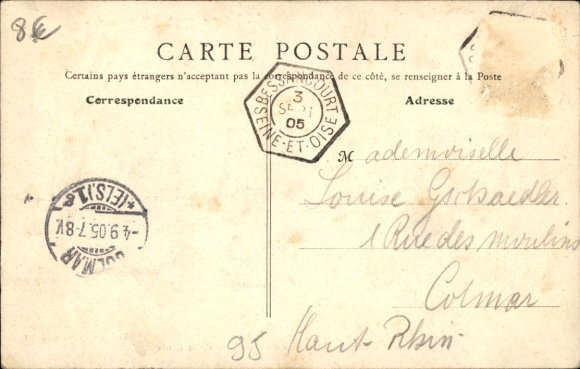 8€
CARTE POSTALE
Certains pays étrangers n'acceptant pas la correspondance de ce côté, se renseigner à la Poste
Correspondance
Adresse
BESSANCOURT
3
SEPT
05
SEINE-ET-OISE
Mademoiselle
Louise Gschaedler
1 Rue des moulins
Colmar
Haut Rhin
95
COLMAR
-4.9.05.7-8V.
*(ELS.)1g